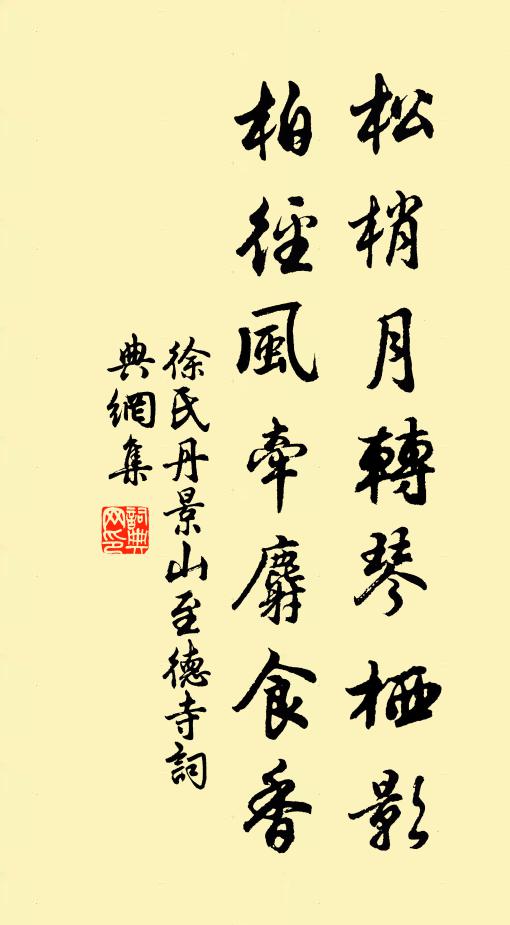 松梢月轉琴栖影
柏徑風牽麝食香
徐氏丹景山至德寺詞
典網集
詞典網印